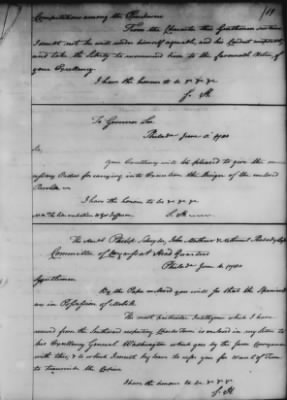 Competitions among the
From the Character this Gentleman
I must not he will render himself agreeable, and his Conduct
and take the liberty to recommend him to the favourable Notice of
your Excellency.
I have the honour to be &c &c &c
S. H.
To Governor Lee
Philada June 5. 1780
Sir,
Your Excellency will be pleased to give the
Orders for carrying into Execution the Design of the enclosed
I have the honour to be &c &c &c
S. H.
The Honble Philip Schuyler, John Mathews & Nathaniel Peabody Esqrs
Committee of Congress at Head Quarters
Philada June 6. 1780
Gentlemen
By the Paper enclosed you will see that the Spaniards
are in Possession of Mobile.
The most particular Intelligence which I have
received from the Southward respecting Charlestown is enclosed in my letter to
his Excellency General Washington which goes by the same Conveyance
with this, & to which I must beg leave to refer you for want of Time
to transcribe the Copies.
I have the honour to be &c &c &c
S. H.